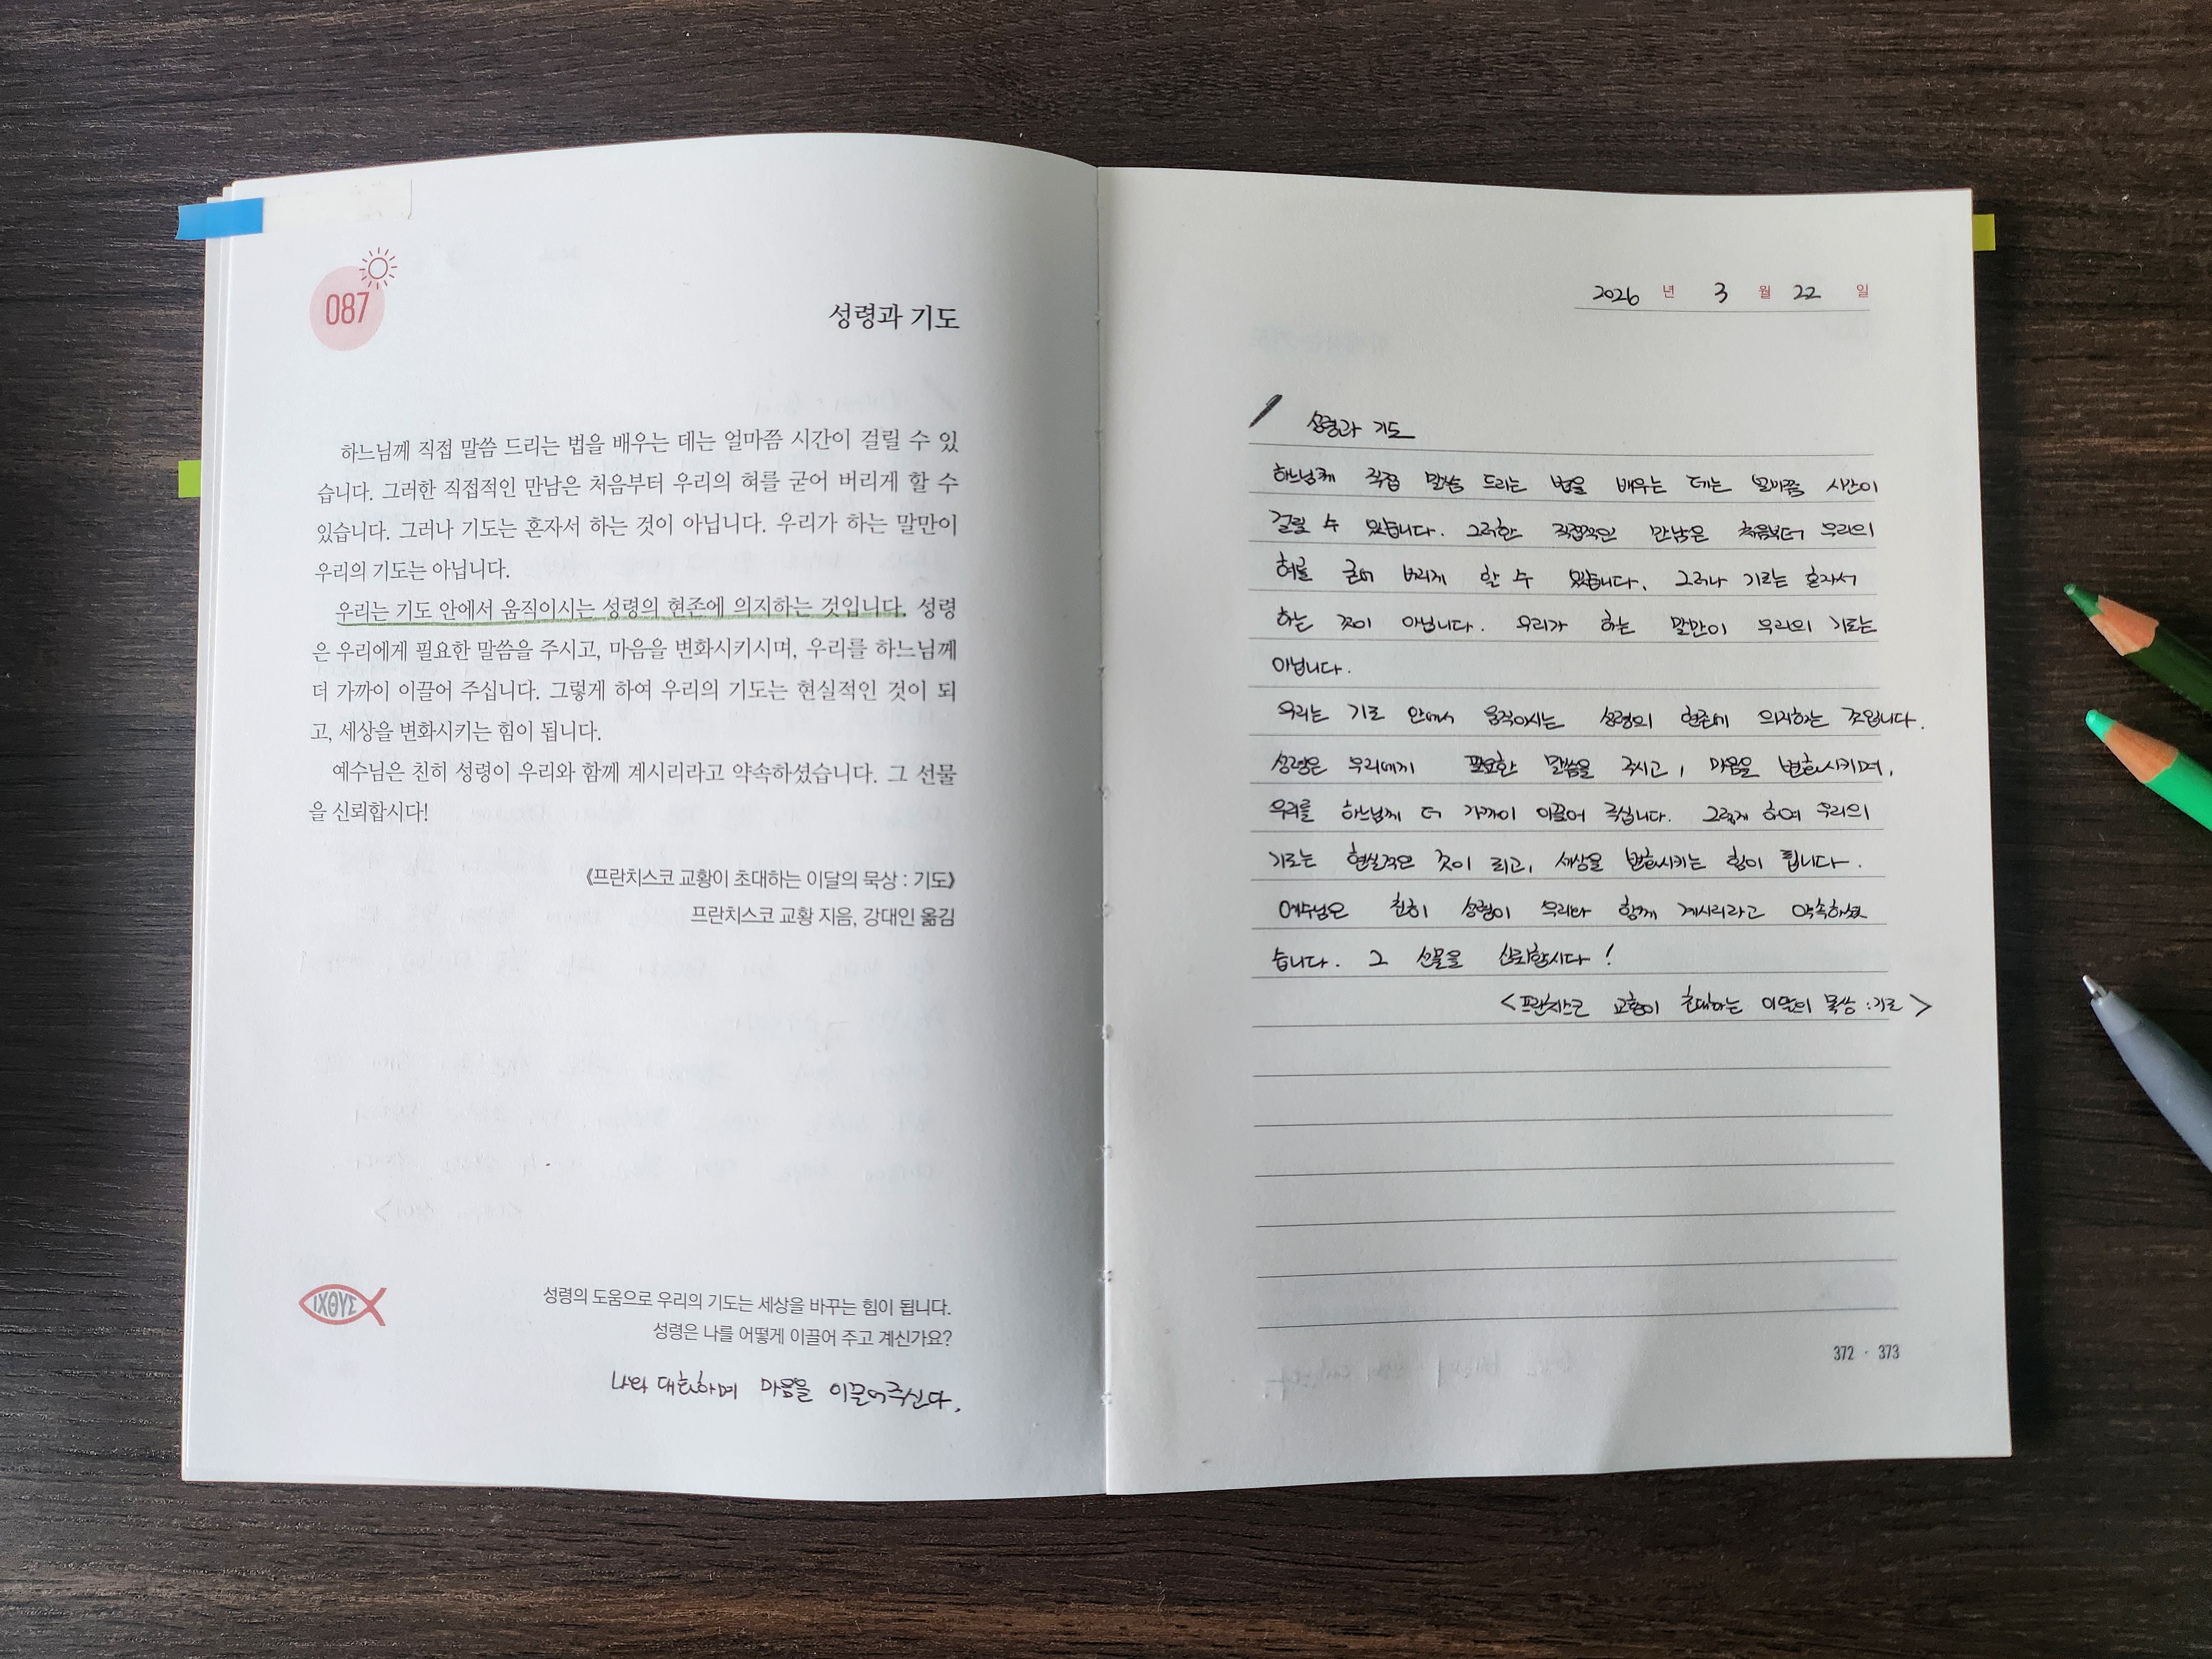 087
성령과 기도
하느님께 직접 말씀 드리는 법을 배우는 데는 얼마쯤 시간이 걸릴 수 있
습니다. 그러한 직접적인 만남은 처음부터 우리의 혀를 굳어 버리게 할 수
있습니다. 그러나 기도는 혼자서 하는 것이 아닙니다. 우리가 하는 말만이
우리의 기도는 아닙니다.
우리는 기도 안에서 움직이시는 성령의 현존에 의지하는 것입니다. 성령
은 우리에게 필요한 말씀을 주시고, 마음을 변화시키시며, 우리를 하느님께
더 가까이 이끌어 주십니다. 그렇게 하여 우리의 기도는 현실적인 것이 되
고, 세상을 변화시키는 힘이 됩니다.
예수님은 친히 성령이 우리와 함께 계시리라고 약속하셨습니다. 그 선물
을 신뢰합시다!
《프란치스코 교황이 초대하는 이달의 묵상 : 기도》
프란치스코 교황 지음, 강대인 옮김
ΙΧΘΥΣ
성령의 도움으로 우리의 기도는 세상을 바꾸는 힘이 됩니다.
성령은 나를 어떻게 이끌어 주고 계신가요?
나와 대화하며 마음을 이끌어주신다.
2026 년 3 월 22 일
성령과 기도
하느님께 직접 말씀 드리는 법을 배우는 데는 얼마쯤 시간이
걸릴 수 있습니다. 그러한 직접적인 만남은 처음부터 우리의
혀를 굳어 버리게 할 수 있습니다. 그러나 기도는 혼자서
하는 것이 아닙니다. 우리가 하는 말만이 우리의 기도는
아닙니다.
우리는 기도 안에서 움직이시는 성령의 현존에 의지하는 것입니다.
성령은 우리에게 필요한 말씀을 주시고, 마음을 변화시키며,
우리를 하느님께 더 가까이 이끌어 주십니다. 그렇게 하여 우리의
기도는 현실적인 것이 되고, 세상을 변화시키는 힘이 됩니다.
예수님은 친히 성령이 우리와 함께 계시리라고 약속하셨
습니다. 그 선물을 신뢰합시다!
<프란치스코 교황이 초대하는 이달의 묵상 : 기도>
372 · 373